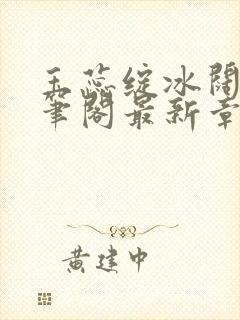 玉蕊绽冰阔
笔阁最新章
黄建中